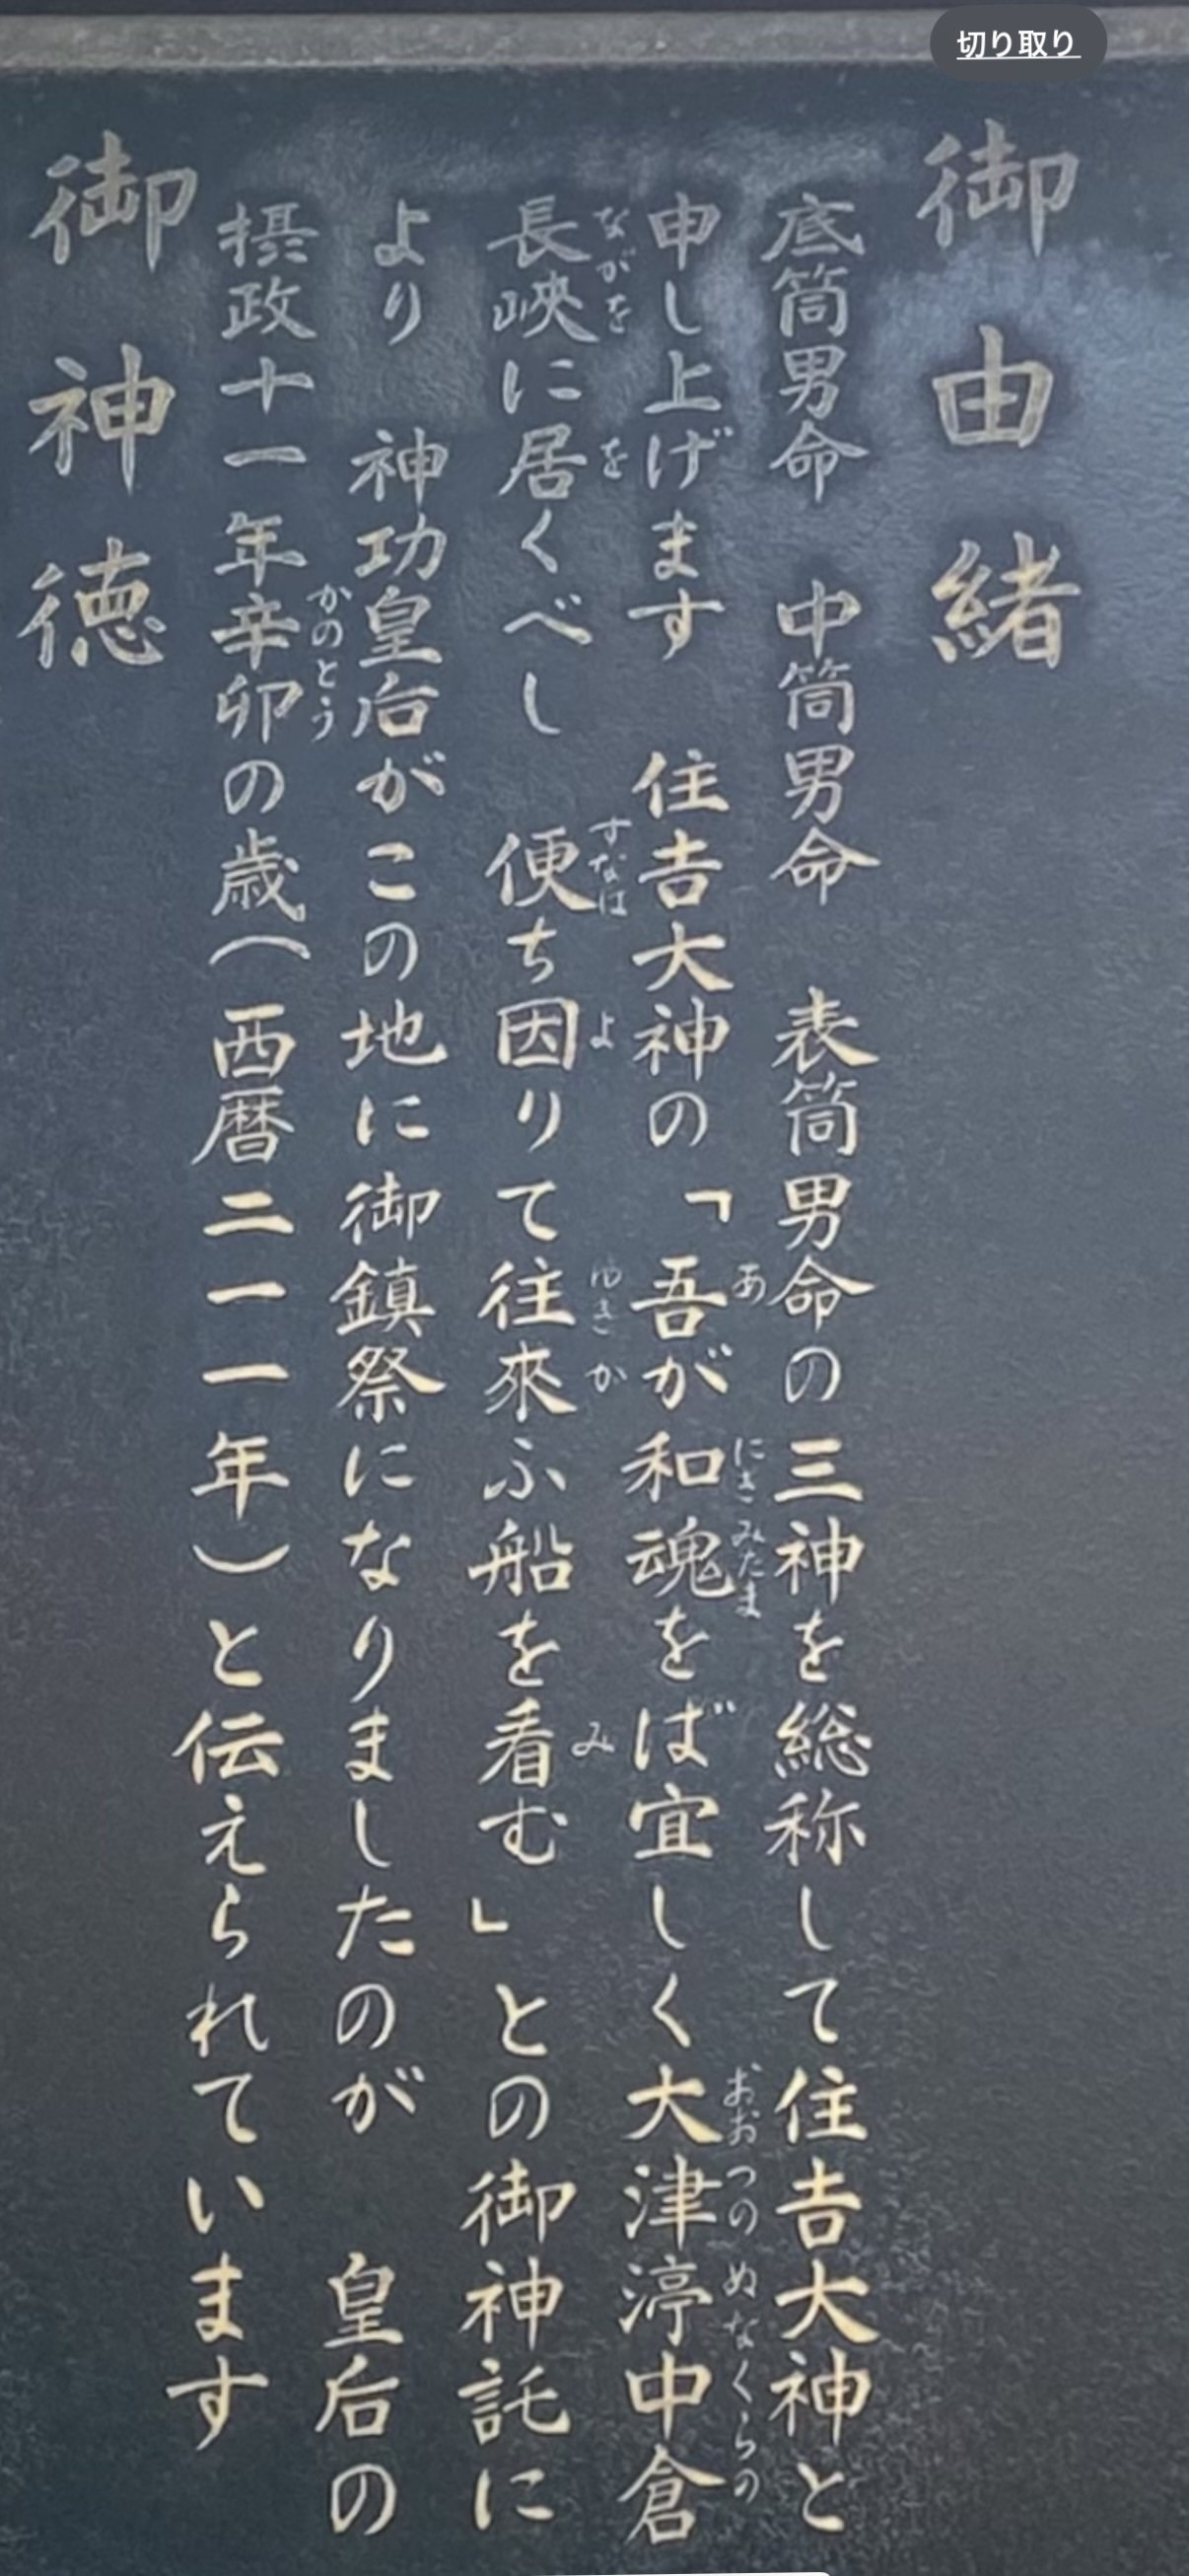 切り取り
御由緒
底筒男命　中筒男命　表筒男命の三神を総称して住吉大神と
申し上げます　住吉大神の「吾が和魂をば宜しく大津渟中倉
あ　にきみたま　おおつのぬなくらの
長峡に居くべし　便ち因りて往來ふ船を看む」との御神託に
ながを　を　すなは　よ　ゆきか　み
より　神功皇后がこの地に御鎮祭になりましたのが　皇后の
摂政十一年辛卯の歳(西暦二一一年)と伝えられています
かのとう
御神徳